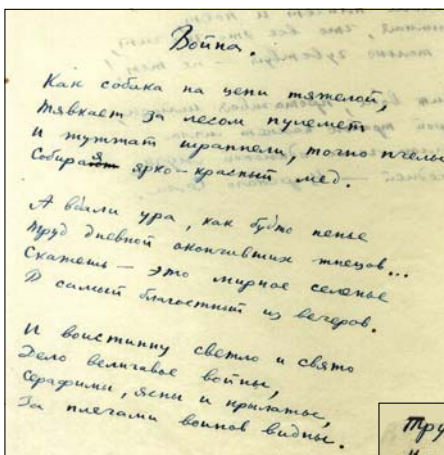 Война.
Как собака на цепи тяжелой,
Тявкает за лесом пулемет
И жужжат шрапнели, точно пчелы
Собирая ярко-красный мед.
А вдали ура, как будто пенье
Труд дневной окончивших жнецов...
Скажешь — это мирное селенье
В самый благостный из вечеров.
И воистинну светло и свято
Дело величавое войны,
Серафимы, ясны и крылаты,
За плечами воинов видны.
Тру